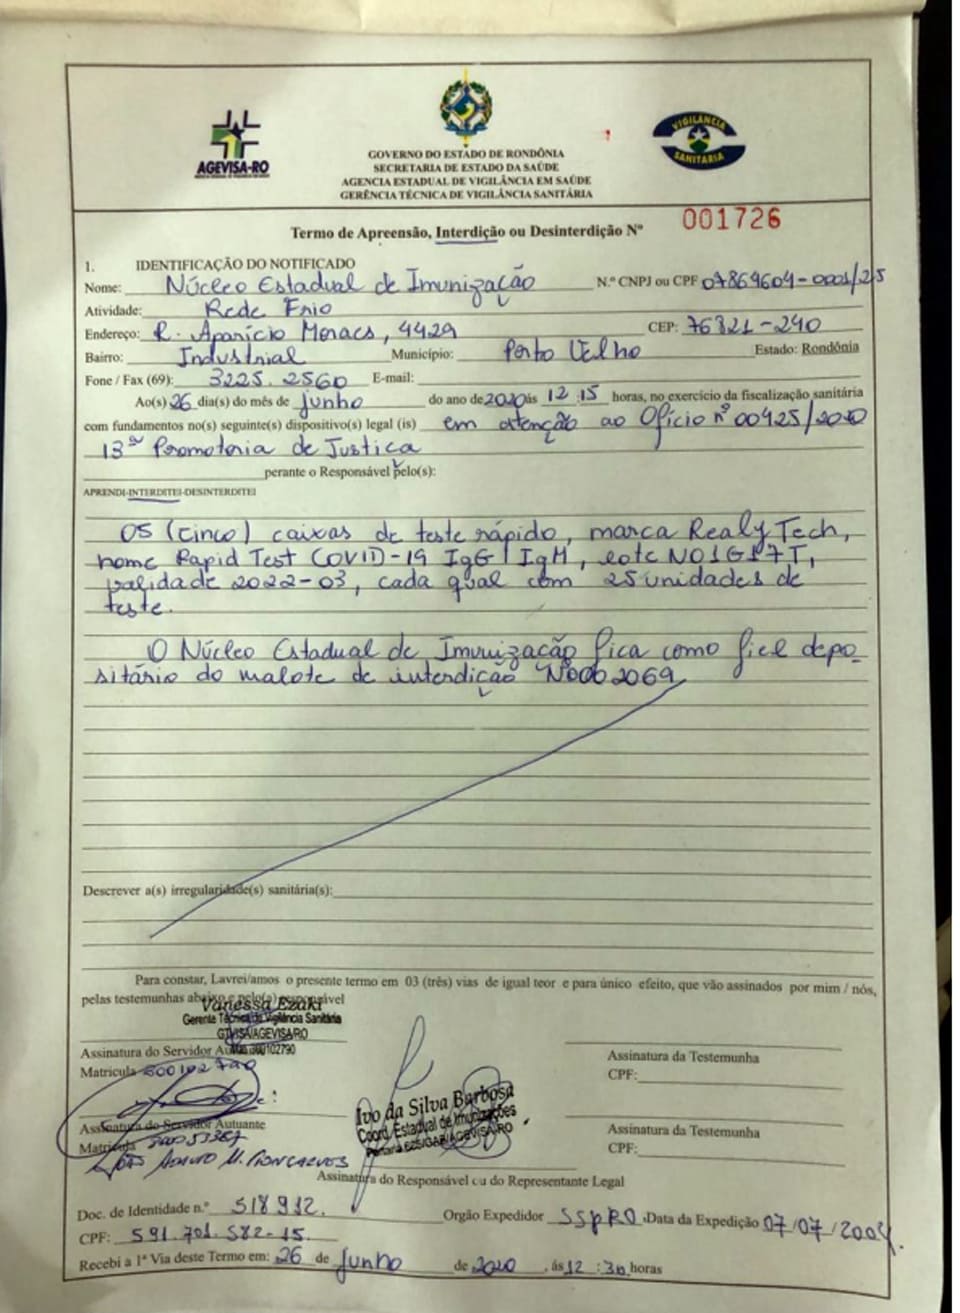 AGEVISA-RO
VIGILÂNCIA
SANITÁRIA
GOVERNO DO ESTADO DE RONDÔNIA
SECRETARIA DE ESTADO DA SAÚDE
AGENCIA ESTADUAL DE VIGILÂNCIA EM SAÚDE
GERÊNCIA TÉCNICA DE VIGILÂNCIA SANITÁRIA
Termo de Apreensão, Interdição ou Desinterdição Nº 001726
1. IDENTIFICAÇÃO DO NOTIFICADO
Nome: Núcleo Estadual de Imunização N.º CNPJ ou CPF 07869604-0001/25
Atividade: Rede Frio
Endereço: R. Aparício Moraes, 4429 CEP: 76821-240
Bairro: Industrial Município: Porto Velho Estado: Rondônia
Fone / Fax (69): 3225.2560 E-mail:
Ao(s) 26 dia(s) do mês de junho do ano de 2020 às 12:15 horas, no exercício da fiscalização sanitária
com fundamentos no(s) seguinte(s) dispositivo(s) legal (is) em atenção ao Ofício nº 00425/2020
13ª Promotoria de Justiça
perante o Responsável pelo(s):
APRENDI-INTERDITEI-DESINTERDITEI
05 (cinco) caixas de teste rápido, marca Realy Tech,
nome Rapid Test COVID-19 IgG/IgM, lote
validade 2022-03, cada qual com 25 unidades de
teste.
O Núcleo Estadual de Imunização fica como fiel depo-
sitário do malote de interdição Nº0002069
Descrever a(s) irregularidade(s) sanitária(s):
Para constar, Lavrei/amos o presente termo em 03 (três) vias de igual teor e para único efeito, que vão assinados por mim / nós,
pelas testemunhas abaixo e pelo(a) responsável
Vanessa Ezaki
Gerente Técnica de Vigilância Sanitária
GTVISA/AGEVISA/RO
Mat. 300102790
Assinatura do Servidor Autuante
Matricula 300102790
Assinatura do Servidor Autuante
Matricula
João M. Gonçalves
Ivo da Silva Barbosa
Coord. Estadual de Imunizações
Portaria 625/GAB/AGEVISA/RO
Assinatura da Testemunha
CPF:
Assinatura da Testemunha
CPF:
Assinatura do Responsável ou do Representante Legal
Doc. de Identidade n.º 518912. Orgão Expedidor SSPRO Data da Expedição 07/07/2004.
CPF: 591.701.582-15.
Recebi a 1ª Via deste Termo em: 26 de Junho de 2020, ás 12:30 horas